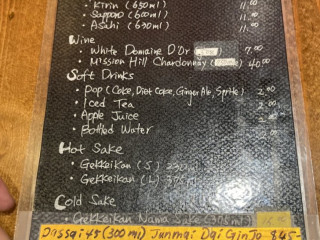 • Kirin (630ml) 11.00
• Sapporo (600ml) 11.00
• Asahi (630ml) 11.00
Wine
• White Domaine D'Or 7.00
• Mission Hill Chardonnay 40.00
Soft Drinks
• Pop (Coke, Diet Coke, Ginger Ale, Sprite)
• Iced Tea
• Apple Juice
• Bottled Water
Hot Sake
• Gekkeikan (S)
• Gekkeikan (L)
Cold Sake
• Gekkeikan Nama Sake (375ml)
Dassai 45 (300ml) Junmai Dai Ginjo $45-